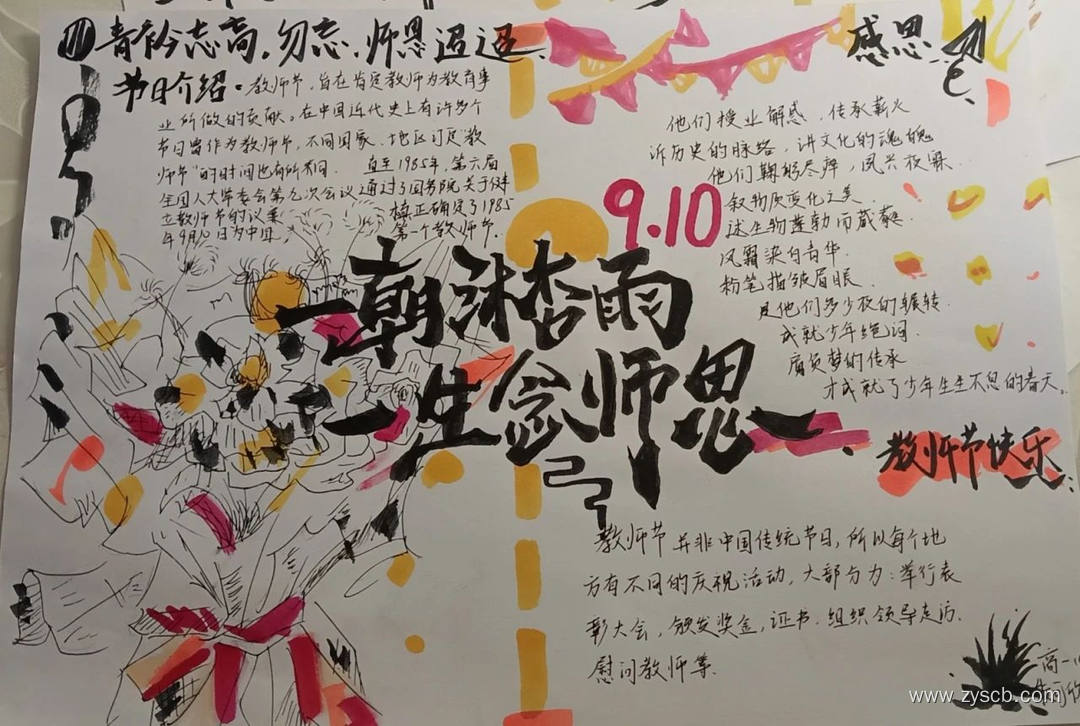 青衿志高，勿忘师恩迢迢
感恩
节日介绍：教师节，旨在肯定教师为教育事
业所做的贡献。在中国近代史上有许多个
节日曾作为教师节，不同国家、地区订民教
师节的时间也有所不同。直至1985年，第六届
全国人大常委会第九次会议通过了国务院关于建
立教师节的议案
年9月10日为中国
真正确定了1985
第一个教师节。
他们授业解惑，传承薪火
诉历史的脉络，讲文化的魂魄
他们鞠躬尽瘁，夙兴夜寐
9.10
叙物质变化之美
述生物蓬勃而葳蕤
风霜染白青华
粉笔描皱眉眼
是他们多少夜的辗转
成就少年绝词
肩负梦的传承
才成就了少年生生不息的春天。
一朝沐杏雨
一生念师恩
教师节快乐
教师节并非中国传统节日，所以每个地
方有不同的庆祝活动，大部分为：举行表
彰大会，颁发奖金，证书，组织领导走访、
慰问教师等。
高一
www.zyscb.com